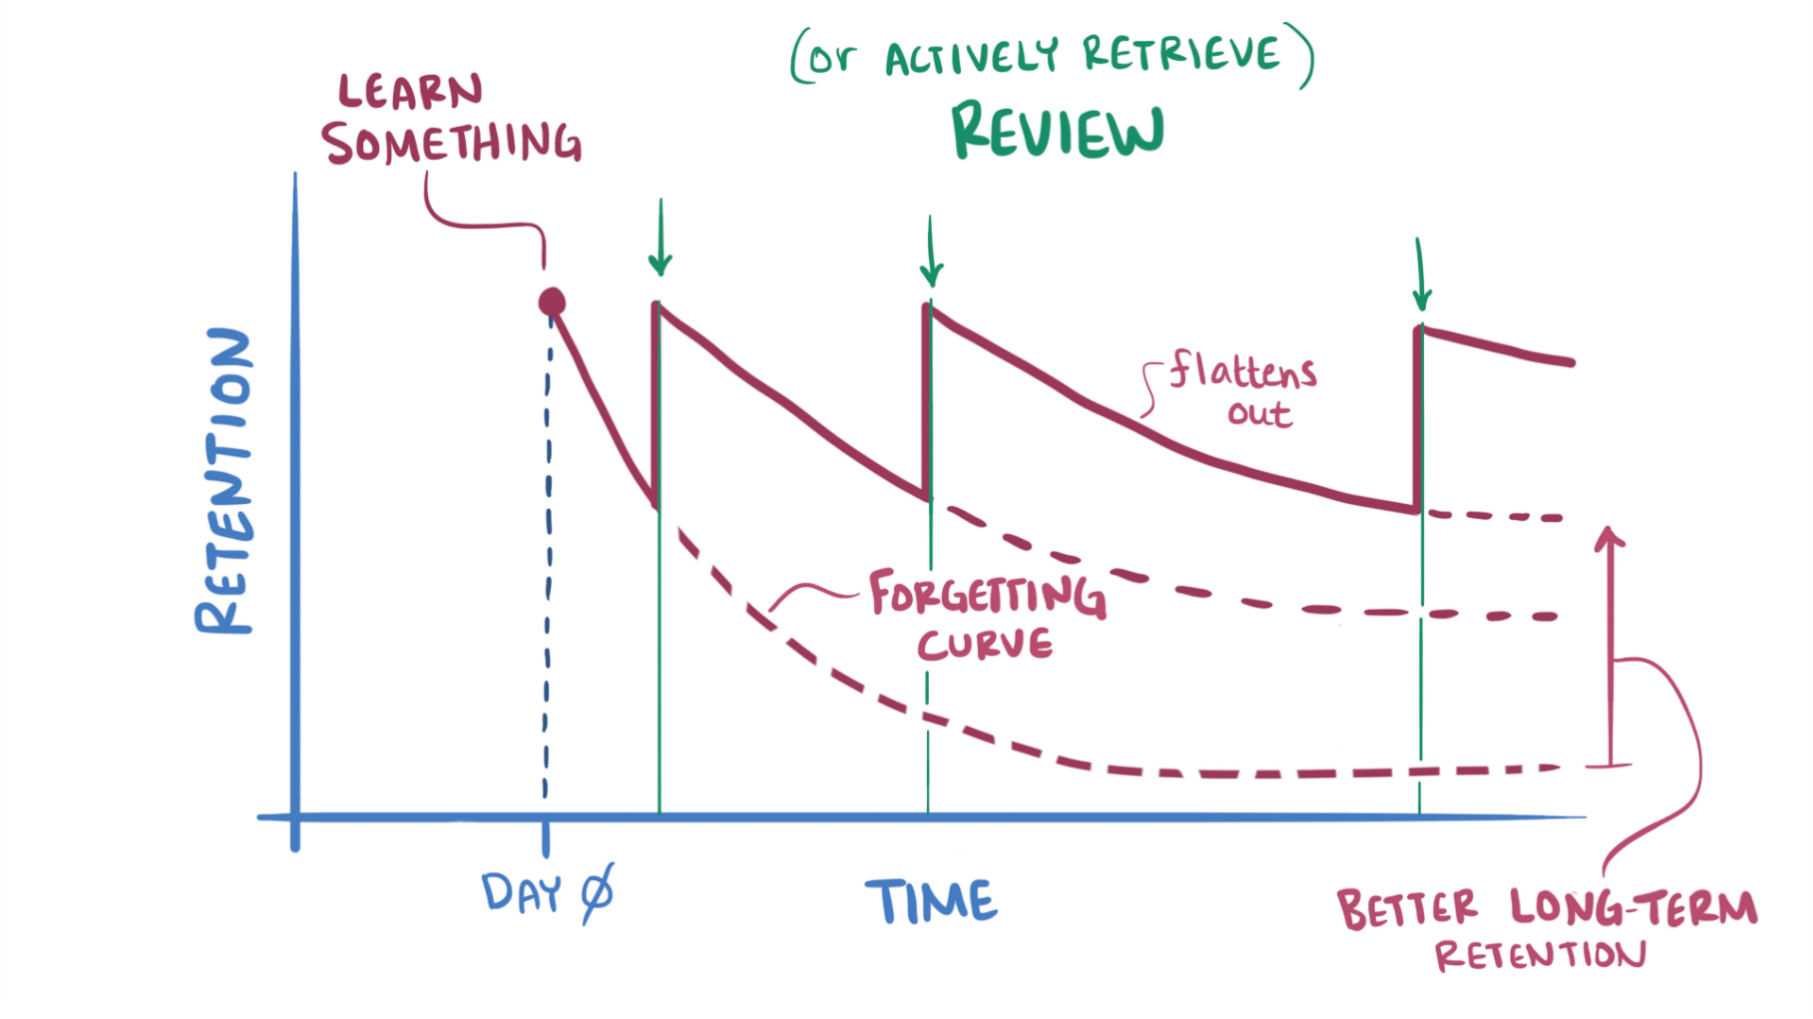 (or ACTIVELY RETRIEVE)
REVIEW
LEARN
SOMETHING
RETENTION
flattens
out
FORGETTING
CURVE
DAY 0
TIME
BETTER LONG-TERM
RETENTION